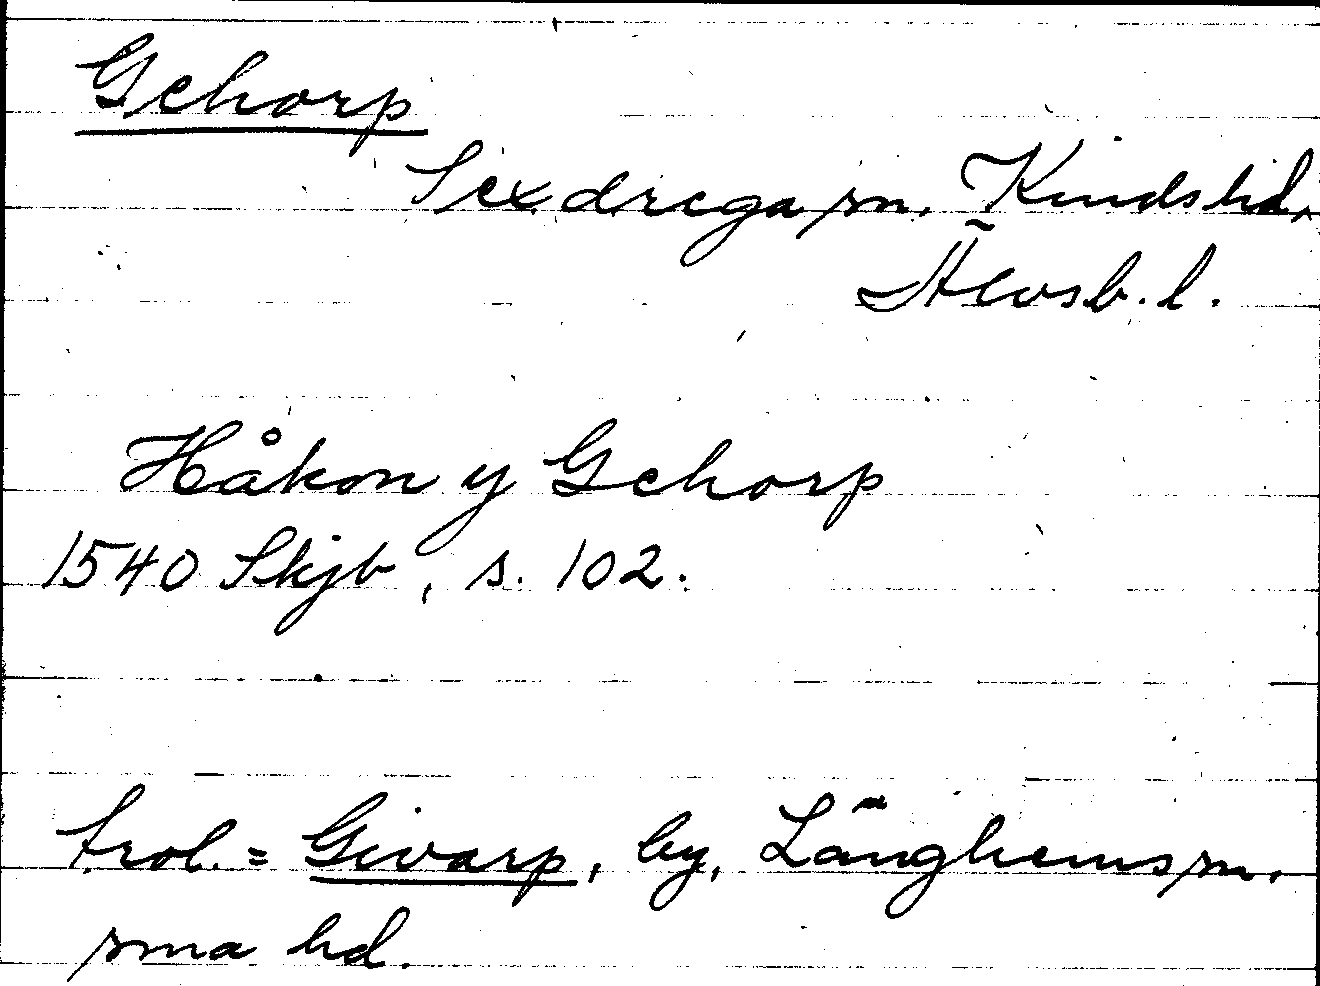 Gehorp
Sexdrega sn. Kinds hd.
Älvsb. l.
Håkon y Gehorp
1540 Skjb, s. 102.
trol. = Givarp, by, Länghems sn.
sma hd.